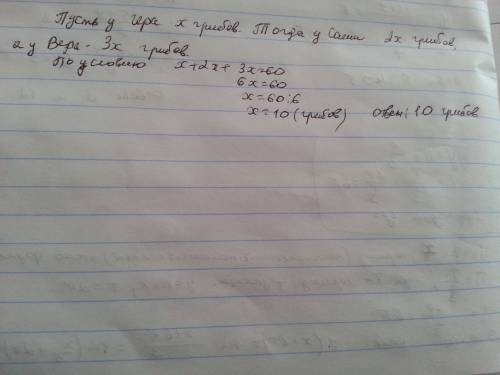 Пусть у Игра x грибов. Тогда у Саши 2x грибов,
а у Веры - 3x грибов.
По условию x+2x+3x=60
6x=60
x=60:6
x=10 (грибов) ответ: 10 грибов